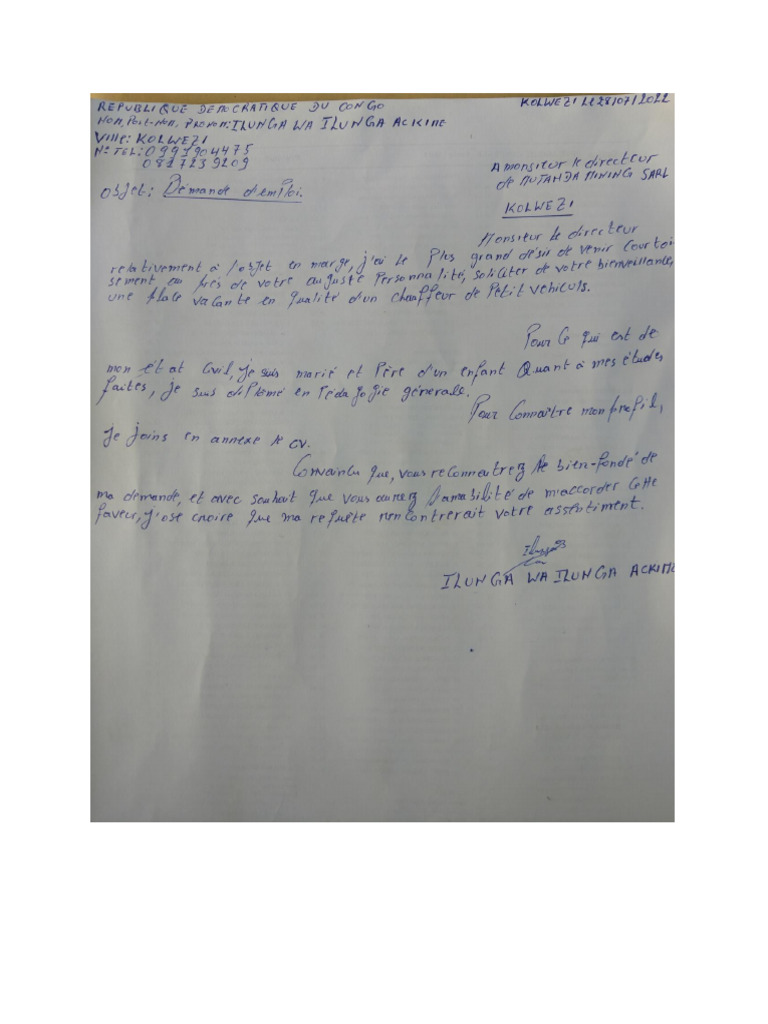 REPUBLIQUE DEMOCRATIQUE DU CONGO
KOLWEZI LE 28/07/2022
NOM, Post-NOM, PRENOM: ILUNGA WA ILUNGA ACKIME
Ville: KOLWEZI
N° TEL: 0991904475
0817239209
A monsieur le directeur
de MUTANDA MINING SARL
objet: Demande d'emploi.
KOLWEZI
Monsieur le directeur
relativement à l'objet en marge, j'ai le plus grand désir de venir courtoi
sement au près de votre auguste personnalité, soliciter de votre bienveillance,
une place vacante en qualité d'un chauffeur de petit vehiculs.
Pour ce qui est de
mon état civil, je suis marié et père d'un enfant Quant à mes études
faites, je suis diplômé en Pédagogie générale.
Pour connaître mon profil,
je joins en annexe le CV.
Convaincu que, vous reconnaitrez le bien-fondé de
ma demande, et avec souhait que vous aurez l'amabilité de m'accorder cette
faveur, j'ose croire que ma requête rencontrerait votre assentiment.
ILUNGA WA ILUNGA ACKIME